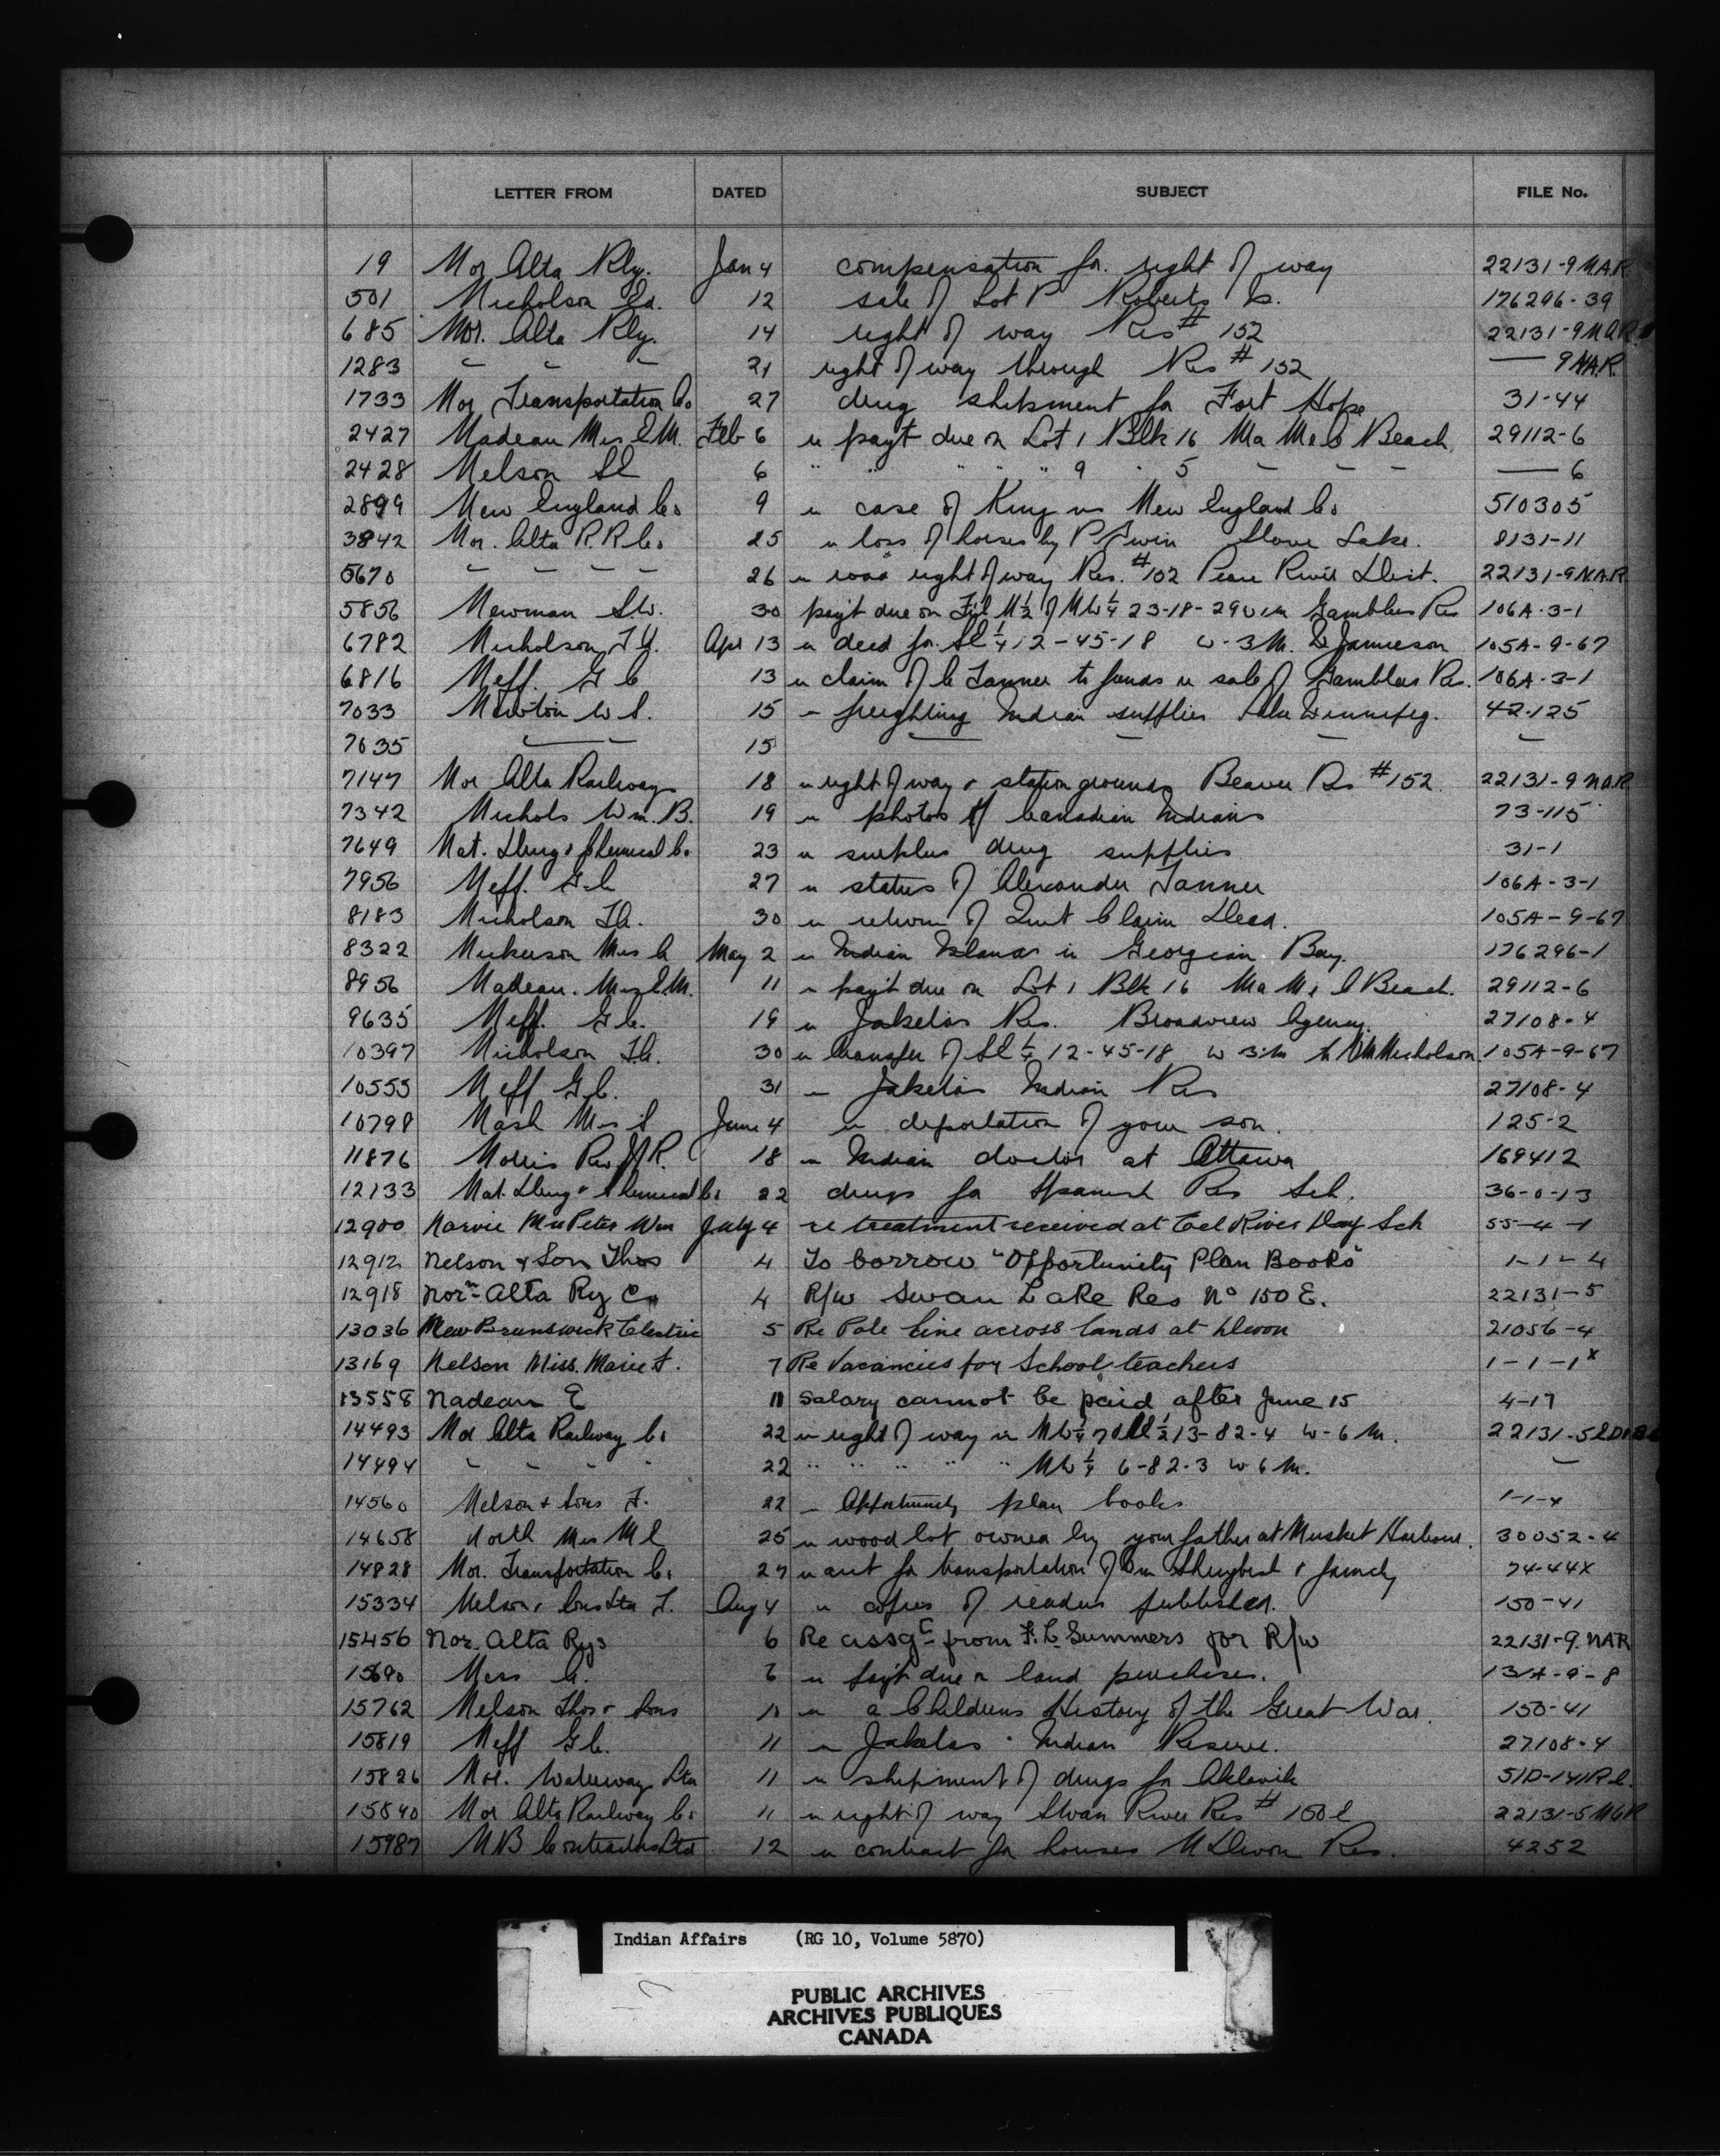 LETTER FROM DATED SUBJECT FILE No.
19 Nor Alta Rly. Jan 4 compensation for right of way 22131-9 N.A.R.
501 Nicholson Ed. 12 sale of Lot P Roberts Is. 176296-39
685 Nor. Alta Rly. 14 right of way Res # 152 22131-9 N.A.R.
1283 " " " 21 right of way through Res # 152 — 9 N.A.R.
1733 Nor Transportation Co 27 drug shipment for Fort Hope 31-44
2427 Nadeau Mrs E.M. Feb 6 re payt due on Lot 1 Blk 16 Ma Me O Beach 29112-6
2428 Nelson 6 " " " " " 9 " 5 - - - — 6
2899 New England Co. 9 re case of King vs New England Co 510305
3842 Nor. Alta R.R Co. 25 re loss of horses by P Slave Lake. 8131-11
5670 - - - - 26 re road right of way Res. #152 Peace River Dist. 22131-9 N.A.R.
5856 Newman S.W. 30 payt due on N½ of NW¼ 23-18-29 W1M Gamblers Res 106A-3-1
6782 Nicholson Apr 13 re deed for SE¼ 12-45-18 W-3M. Jamieson 105A-9-67
6816 Neff. G C 13 re claim of C Tanner to funds re sale of Gamblers Res. 106A-3-1
7033 Newton W S. 15 - freighting Indian supplies Lake Winnipeg. 42-125
7035 — - 15 — - - -
7147 Nor Alta Railway 18 re right of way & station grounds Beaver Res #152. 22131-9 N.A.R
7342 Nichols Wm. B. 19 re photos of Canadian Indians 73-115
7649 Nat. Drug & Chemical Co. 23 re surplus drug supplies 31-1
7956 Neff. G.C 27 re status of Alexander Tanner 106A-3-1
8183 Nicholson 30 re return of Quit Claim Deed. 105A-9-67
8322 Nickerson Mrs C May 2 re Indian Islands in Georgian Bay. 176296-1
8956 Nadeau. Mrs E.M. 11 re payt due on Lot 1 Blk 16 Ma Me O Beach. 29112-6
9635 Neff. G C. 19 re Res. Broadview Agency. 27108-4
10397 Nicholson 30 re transfer of SE¼ 12-45-18 W 3M to Nicholson. 105A-9-67
10555 Neff G C. 31 - Indian Res 27108-4
10798 Nash Mrs June 4 re deportation of your son. 125-2
11876 Rev. R. 18 re Indian doctor at Ottawa 169412
12133 Nat. Drug & Chemical Co. 22 drugs for Spanish Res Sch. 36-0-13
12900 Narvie Mrs Peter Wm July 4 re treatment received at Eel River Day Sch 55-4-1
12912 Nelson & Son Thos 4 To borrow "Opportunity Plan Books" 1-1-4
12918 Norn Alta Ry Co 4 R/w Swan Lake Res No 150 E. 22131-5
13036 New Brunswick Electric 5 Re Pole Line across lands at Devon 21056-4
13169 Nelson Miss. Marie F. 7 Re Vacancies for School teachers 1-1-1x
13558 Nadeau E 11 Salary cannot be paid after June 15 4-17
14493 Nor Alta Railway Co 22 re right of way in NW¼ 13-82-4 W-6 M. 22131-5
14494 - - - - 22 " " " " " NW¼ 6-82-3 W 6 M. -
14560 Nelson & Sons T. 22 - Opportunity plan books 1-1-4
14658 North Mrs M E 25 re wood lot owned by your father at Musket Harbour. 30052-4
14828 Nor. Transportation Co. 27 re acct for transportation of & family 74-44X
15334 Nelson & Sons Ltd T. Aug 4 re copies of readers published. 150-41
15456 Nor. Alta Rys 6 Re assgt from F. C Summers for R/w 22131-9. NAR
15690 Ness 6 re payt due on land purchases. 131A-9-8
15762 Nelson Thos & Sons 10 re a Childrens History of the Great War. 150-41
15819 Neff G C. 11 re Indian Reserve. 27108-4
15826 Nor. Waterways Ltd 11 re shipment of drugs for Aklavik 51D-141
15840 Nor Alta Railway Co. 11 re right of way Swan River Res # 150E 22131-5
15987 N B Contractors Ltd 12 re contract for houses Devon Res. 4252
Indian Affairs (RG 10, Volume 5870)
PUBLIC ARCHIVES
ARCHIVES PUBLIQUES
CANADA